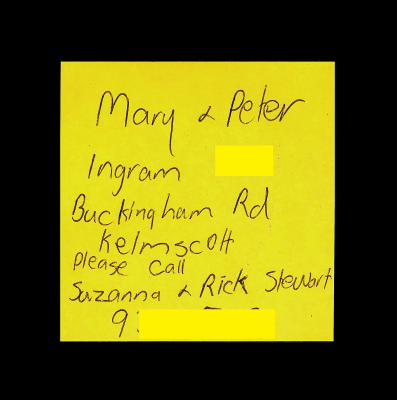 Mary & Peter
Ingram
Buckingham Rd
Kelmscott
Please Call
Suzanna & Rick Stewart
9